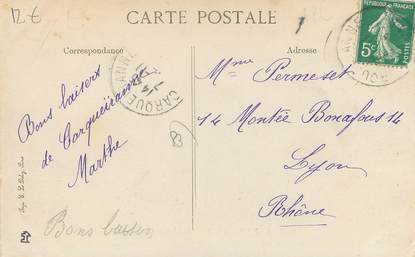 12 €
CARTE POSTALE
Correspondance
Adresse
RÉPUBLIQUE FRANÇAISE
5c
CARQUEIRANNE
Bons baisers
de Carqueiranne
Marthe
Mme Permezet
14 Montée Bonafous 14
Lyon
Rhône
83
Bons baisers